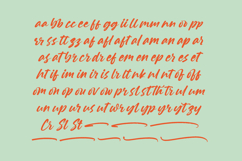 aa bb cc ee ff gg ii ll mm nn oo pp
rr ss tt zz af afl aft al am an ap ar
as at br cr dr ef em en ep er es et
ht if im in ir is lr lt nb nl nt of off
om on op ov ow pr sl st th tr ul um
un up ur us ut wr yl yp yr yt zy
Cr Sl St